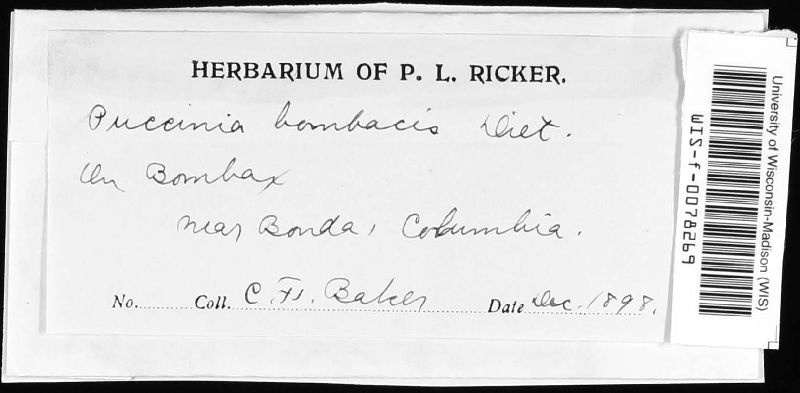 HERBARIUM OF P. L. RICKER.
Puccinia bombacis Diet.
On Bombax
near Bonda, Columbia.
No. Coll. C. F. Baker Date Dec. 1898.
University of Wisconsin-Madison (WIS)
WIS-f-0078269